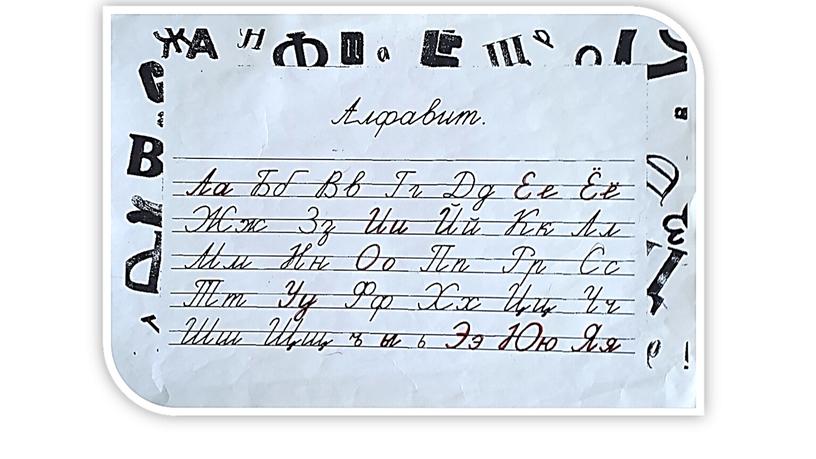 ЖА Н Ф а Щ
Алфавит.
В
Аа Бб Вв Гг Дд Ее Ёё
Жж Зз Ии Йй Кк Лл
Мм Нн Оо Пп Рр Сс
Тт Уу Фф Хх Цц Чч
Шш Щщ ъ ы ь Ээ Юю Яя